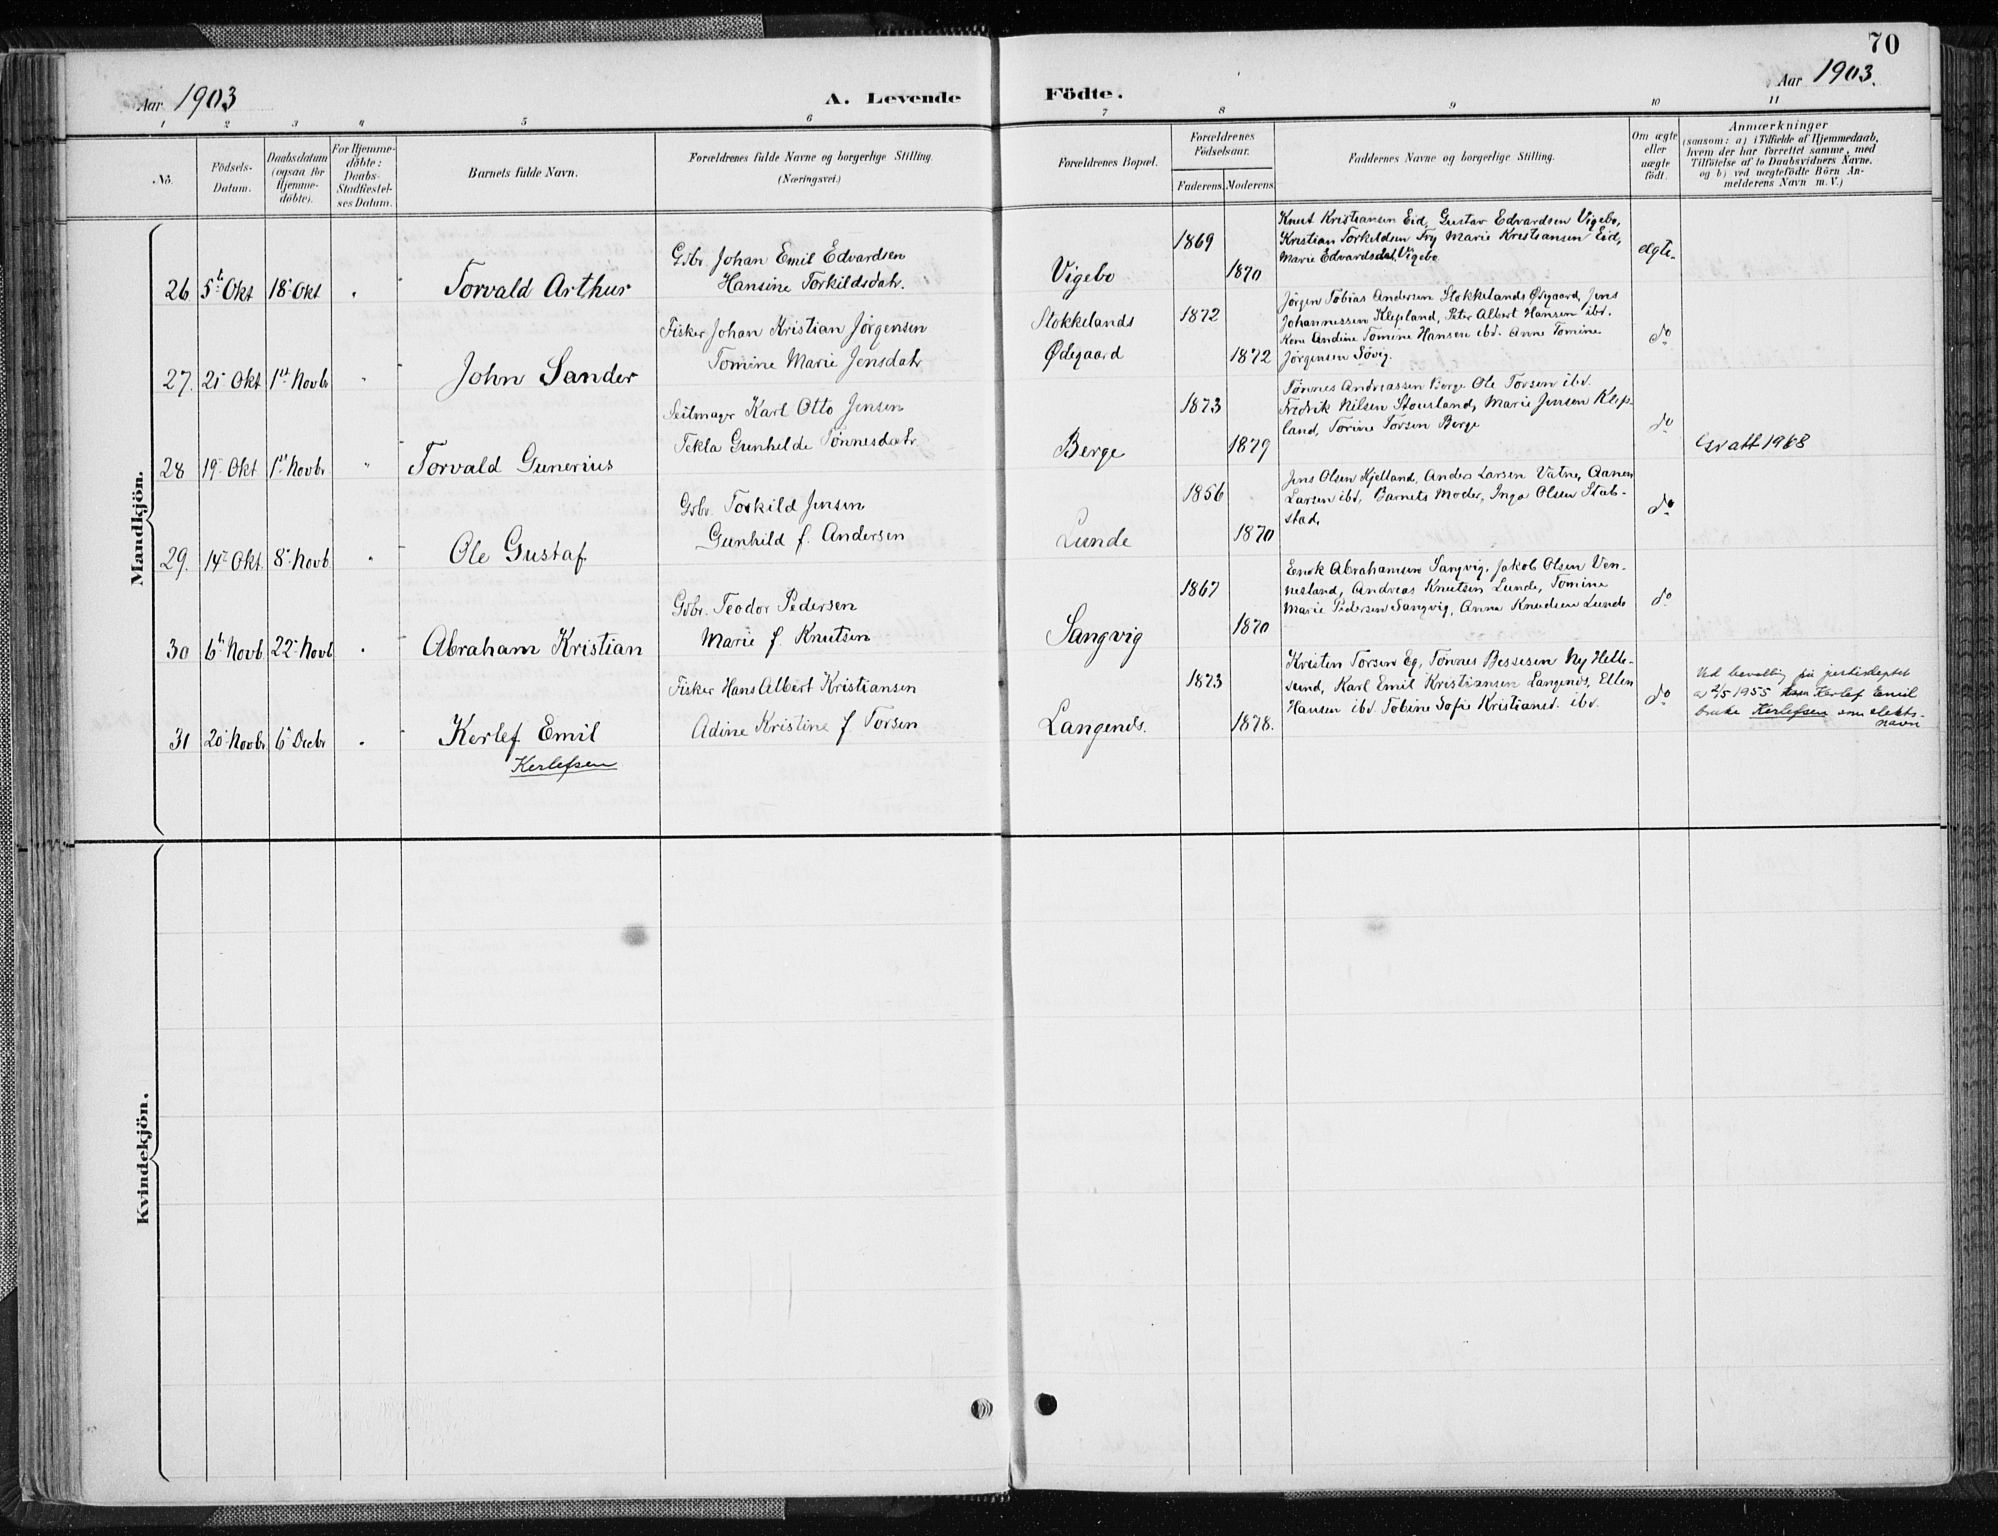 70
Aar 1903
A. Levende
Födte.
Aar 1903.
1 2 3 4 5 6 7 8 9 10 11
No.
Födsels-
Datum.
Daabsdatum
(ogsaa for
Hjemme-
döbte).
For Hjemme-
döbte:
Daabs-
Stadfæstel-
ses Datum.
Barnets fulde Navn.
Forældrenes fulde Navne og borgerlige Stilling.
(Næringsvei.)
Forældrenes Bopæl.
Forældrenes
Födselsaar.
Faderens. Moderens.
Faddernes Navne og borgerlige Stilling.
Om ægte
eller
uægte
födt.
Anmærkninger
(saasom: a) i Tilfælde af Hjemmedaab,
hvem der har forrettet samme, med
Tilföielse af to Daabsvidners Navne,
og b) ved uægtefödte Börn An-
melderens Navn m. V.)
Mandkjön.
26 5te Okt 18 Okt " Torvald Arthur
Gbr. Johan Emil Edvardsen
Hansine Torkildsdatr.
Vigebo
1869
1870
Knut Kristiansen Eid, Gustav Edvardsen Vigebo,
Kristian Torkeldsen Try Marie Kristiansen Eid,
Marie Edvardsdat. Vigebo
ægte
27. 21 Okt 1st Novbr " John Sander
Fisker Johan Kristian Jørgensen
Tomine Marie Jensdatr
Stokkelands
Ødegaard
1872
1872
Jörgen Tobias Andersen Stokkelands Ødegaard, Jens
Johannessen Klepland, Peter Albert Hansen ibd.
Kone Andine Tomine Hansen ibd. Anne Tomine
Jørgensen Søvig.
do
28 19 Okt 1st Novbr " Torvald Gunerius
Seilmager Karl Otto Jensen
Tekla Gunhilde Tönnesdatr
Berge
1873
1879
Tönnes Andreassen Berge Ole Torsen ibd.
Fredrik Nilsen Stousland, Marie Jensen Klep-
land, Torine Torsen Berge
do
att 1968
29. 14 Okt. 8 Novb. " Ole Gustaf
Gbr. Torkild Jensen
Gunhild f. Andersen
Lunde
1856
1870
Jens Olsen Hjelland, Anders Larsen Vatne, Aanen
Larsen ibd, Barnets Moder, Inga Olsen Stub-
stad,
do
30 6te Novb. 22 Novb " Abraham Kristian
Gbr. Teodor Pedersen
Marie f. Knutsen
Sangvig
1867
1870
Enok Abrahamsen Sangvig, Jakob Olsen Ven-
nesland, Andreas Knutsen Lunde, Tomine
Marie Pedersen Sangvig, Anna Knudsen Lunde
do
31 20 Novbr 6 Decbr " Kerlef Emil
Kerlefsen
Fisker Hans Albert Kristiansen
Adine Kristine f Torsen
Langenes.
1873
1878.
Kristen Torsen Eg, Tönnes Bessesen Ny Helle-
sund, Karl Emil Kristiansen Langenes, Ellen
Hansen ibd. Tobine Sofie Kristiansd. ibd.
do
Ved bevilling fra justisdeptet
av 2/5 1955 kan Kerlef Emil
bruke Kerlefsen som slekts-
navn
Kvindekjön.